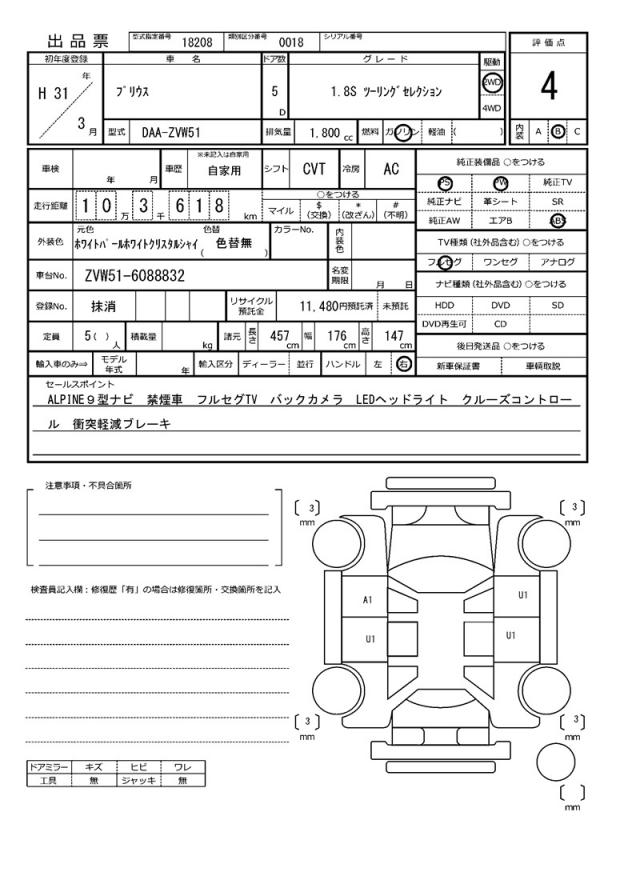 出品票 型式指定番号 18208 類別区分番号 0018 シリアル番号
評価点
4
内装 A B C
初年度登録 車名 ドア数 グレード 駆動
H 31 年 3 月
プリウス
5 D
1.8S ツーリングセレクション
2WD
4WD
型式 DAA-ZVW51 排気量 1.800 cc 燃料 ガソリン 軽油 ( )
車検 年 月 車歴 ※未記入は自家用 自家用 シフト CVT 冷房 AC
走行距離 10万3千618km
○をつける
マイル $(交換) *(改ざん) #(不明)
外装色 元色 ホワイトパールホワイトクリスタルシャイ 色替 ( 色替無 ) カラーNo. 内装色
車台No. ZVW51-6088832 名変期限 月 日
登録No. 抹消 リサイクル預託金 11,480円預託済 未預託
定員 5( )人 積載量 kg 諸元 長さ 457cm 幅 176cm 高さ 147cm
輸入車のみ⇒ モデル年式 年 輸入区分 ディーラー 並行 ハンドル 左 右
純正装備品 ○をつける
PS PW 純正TV
純正ナビ 革シート SR
純正AW エアB ABS
TV種類(社外品含む)○をつける
フルセグ ワンセグ アナログ
ナビ種類(社外品含む)○をつける
HDD DVD SD
DVD再生可 CD
後日発送品 ○をつける
新車保証書 車輌取説
セールスポイント
ALPINE9型ナビ 禁煙車 フルセグTV バックカメラ LEDヘッドライト クルーズコントロー
ル 衝突軽減ブレーキ
注意事項・不具合箇所
検査員記入欄:修復歴「有」の場合は修復箇所・交換箇所を記入
[ 3 ] mm
[ 3 ] mm
A1
U1
U1
U1
[ 3 ] mm
[ 3 ] mm
[ ] mm
ドアミラー キズ ヒビ ワレ
工具 無 ジャッキ 無